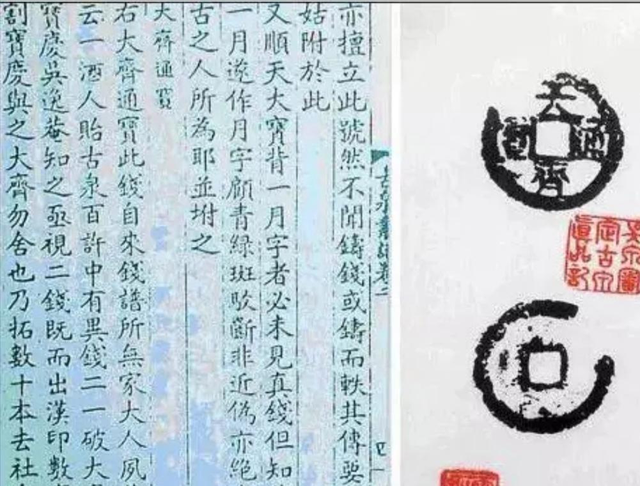 大齊通寶
卷二
四
亦擅立此號然不聞鑄錢或鑄而軼其傳要
姑附於此
又順天大寶背一月字者必未見真錢但知
一月遂作月字顧青綠斑駁斷非近偽亦絕
古之人所為耶並坿之
大齊通寶
右大齊通寶此錢自來錢譜所無家大人夙
云一酒人貽古泉百許中有異錢二一破大
寶慶吳逸菴知之亟視二錢既而出漢印數
割寶慶與之大齊勿舍也乃拓數十本去社